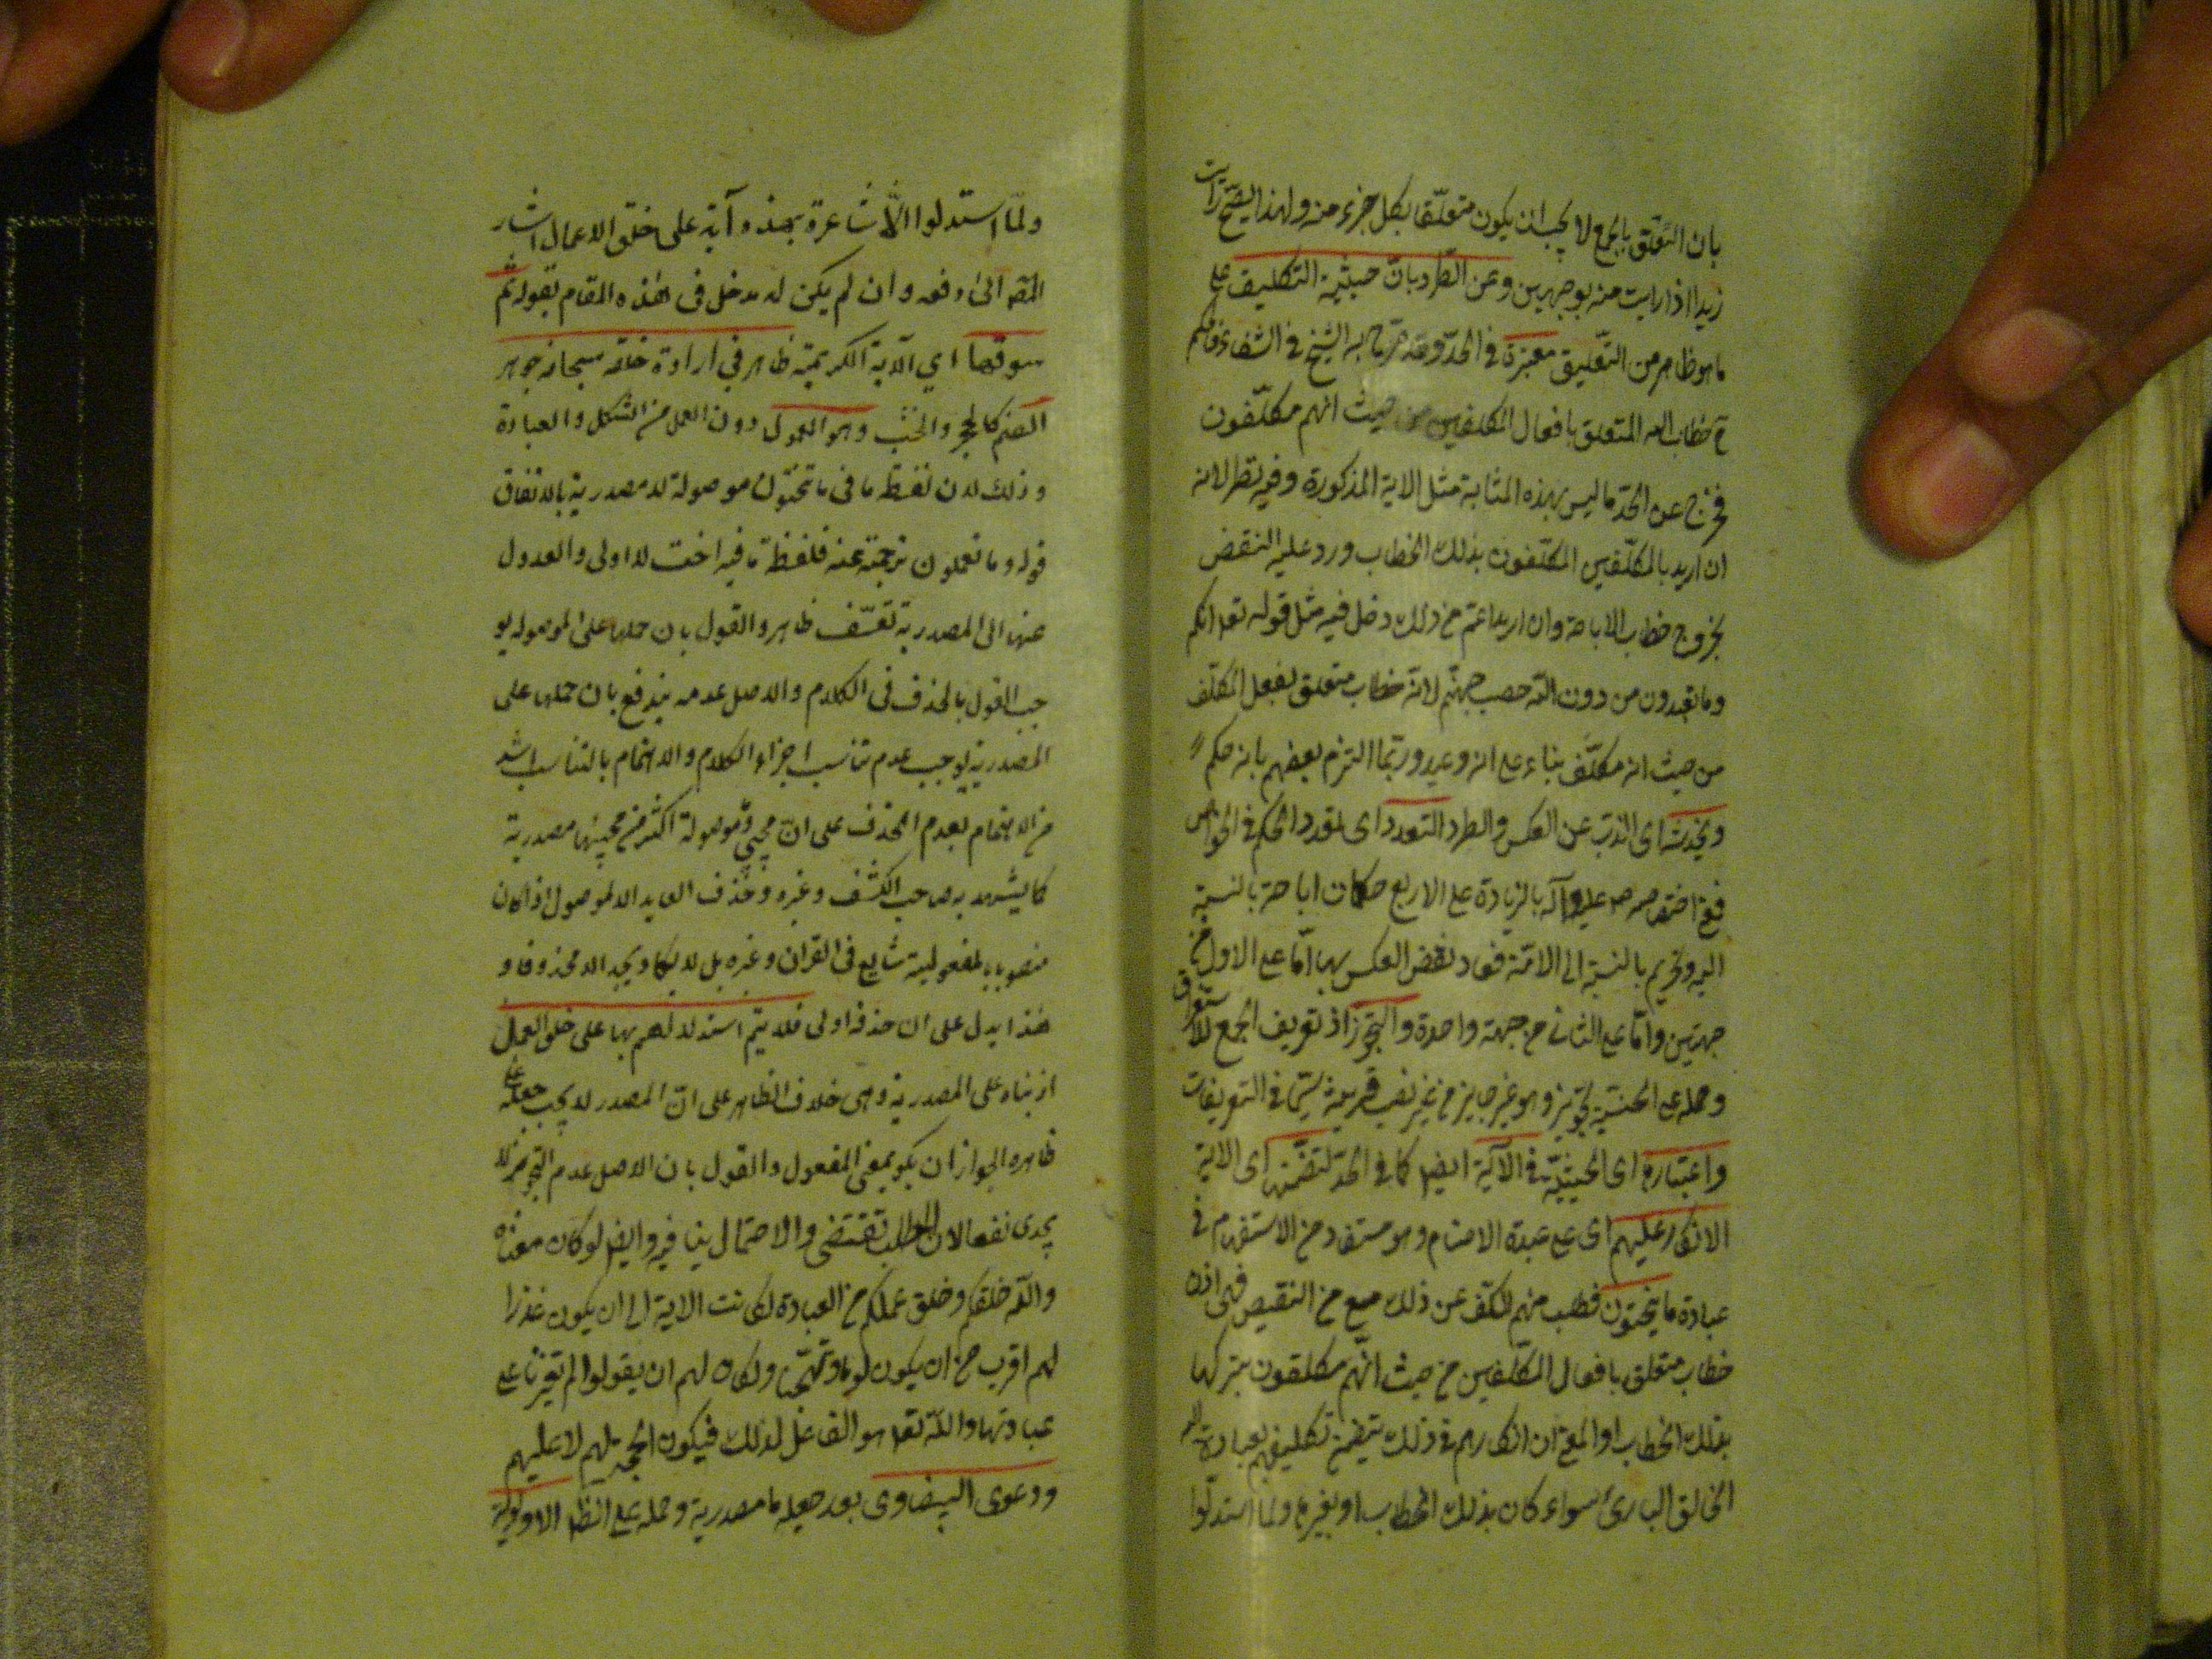 بان التعلق بالجمع لا يجب ان يكون متعلقا بكل جزء منه ولهذا يصح رايت
زيدا اذا رايت منه بوجهين وعن الطرد بان حيثية التكليف على
ما هو ظاهر من التعليق معتبرة في الحد وقد صرح به الشيخ في الشفاء فالحكم
ح خطاب الله المتعلق بافعال المكلفين من حيث انهم مكلفون
فخرج عن الحد ما ليس بهذه المثابة مثل الاية المذكورة وفيه نظر لانه
ان اريد بالمكلفين المكلفون بذلك الخطاب ورد عليه النقض
بخروج خطاب الاباحة وان اريد اعم من ذلك دخل فيه مثل قوله تعه انكم
وما تعبدون من دون الله حصب جهنم لانه خطاب متعلق بفعل المكلف
من حيث انه مكلف بناء على انه وعيد وربما التزم بعضهم بانه حكم
ويخدشه اى الذب عن العكس والطرد التعدد اى تعدد الحكم في الخواص
ففى اختصاصه صه عليه وآله بالزيادة على الاربع حكمان اباحة بالنسبة
اليه وتحريم بالنسبة الى الامة فعاد نقض العكس بها اما على الاول فمن
جهتين واما على الثانى من جهة واحدة والتجوز اذ تعريف الجمع للاستغراق
وحمله على الجنسية تجوز وهو غير جايز من غير نصب قرينة سيما في التعريفات
واعتباره اى الحيثية في الآية ايضا كما في الحد لتضمنها اى الاية
الانكار عليهم اى على عبدة الاصنام وهو مستفاد من الاستفهام في
عبادة ما ينحتون فطلب منهم الكف عن ذلك ميع من النقيض فهى اذن
خطاب متعلق بافعال المكلفين من حيث انهم مكلفون بتركها
بذلك الخطاب او المعنى ان انكارهم في ذلك يتضمن تكليفهم بعبادة الله
الخالق البارئ سواء كان بذلك الخطاب او بغيره ولما استدلوا
ولما استدلوا الاشاعرة بهذه آية على خلق الاعمال اشار
المصه الى دفعه وان لم يكن له مدخل في هذه المقام بقوله ثم
سوقها اي الآية الكريمة ظاهر في ارادة خلقه سبحانه جوهر
الصنم كالحجر والخشب وهو المعمول دون العمل من الشكل والعبادة
وذلك لان لفظه ما في ما تنحتون موصولة لا مصدرية بالاتفاق
قوله وما تعملون ترجمة عنه فلفظة ما فيه اخت لاولى والعدول
عنها الى المصدرية تعسف ظاهر والقول بان حملها على الموصولة يو
جب القول بالحذف في الكلام والاصل عدمه يندفع بان حملها على
المصدرية يوجب عدم تناسب اجزاء الكلام والاهتمام بالتناسب اشد
من الاهتمام بعدم الحذف على ان مجيئ ما موصولة اكثر من مجيئها مصدرية
كما يشهد به صاحب الكشف وغيره وحذف العايد الموصول اذا كان
منصوبا بالمفعولية شايع في القران وغيره بل لا يكاد يجد الا محذوفا و
هذا يدل على ان حذفه اولى فلا يتم استدلالهم بها على خلق العمل
اذ بناه على المصدرية وهى خلاف الظاهر على ان المصدر لا يجب جعله على
ظاهره لجواز ان يكو بمعنى المفعول والقول بان الاصل عدم التجوز لا
يجدى نفعا لان المطلب تقتضى والاحتمال ينافيه وايضا لو كان معناه
والله خلقكم وخلق عملكم من العبادة لكانت الاية الى ان يكون عذرا
لهم اقرب من ان يكون لوما وتهجينا ولكان لهم ان يقولوا لم تعيرنا على
عبادتها والله تعه هو الفاعل لذلك فيكون الحجة لهم لا عليهم
ودعوى البيضاوى بعد جعله ما مصدرية وحمله على الظاهر الاولوية